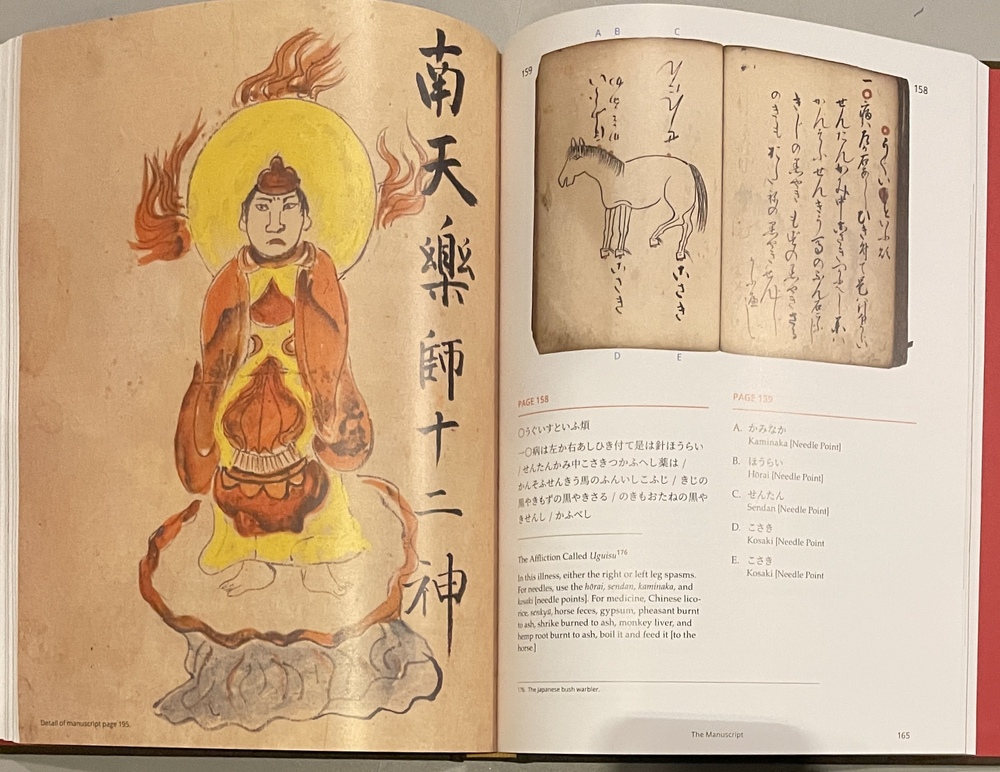 南天樂師十二神
Detail of manuscript page 195.
A B C
159
158
D E
PAGE 158
〇うぐいすといふ煩
一〇病は左か右あしひき付て是は針ほうらい
/ せんたんかみ中こさきつかふへし薬は /
かんそふせんきう馬のふんいしこふじ / きじの
黒やきもずの黒やきさる / のきもおたねの黒や
きせんし / かふべし
The Affliction Called Uguisu176
In this illness, either the right or left leg spasms.
For needles, use the hōrai, sendan, kaminaka, and
kosaki [needle points]. For medicine, Chinese lico-
rice, senkyū, horse feces, gypsum, pheasant burnt
to ash, shrike burned to ash, monkey liver, and
hemp root burnt to ash, boil it and feed it [to the
horse.]
176. The Japanese bush warbler.
PAGE 159
A. かみなか
Kaminaka [Needle Point]
B. ほうらい
Hōrai [Needle Point]
C. せんたん
Sendan [Needle Point]
D. こさき
Kosaki [Needle Point
E. こさき
Kosaki [Needle Point
The Manuscript
165